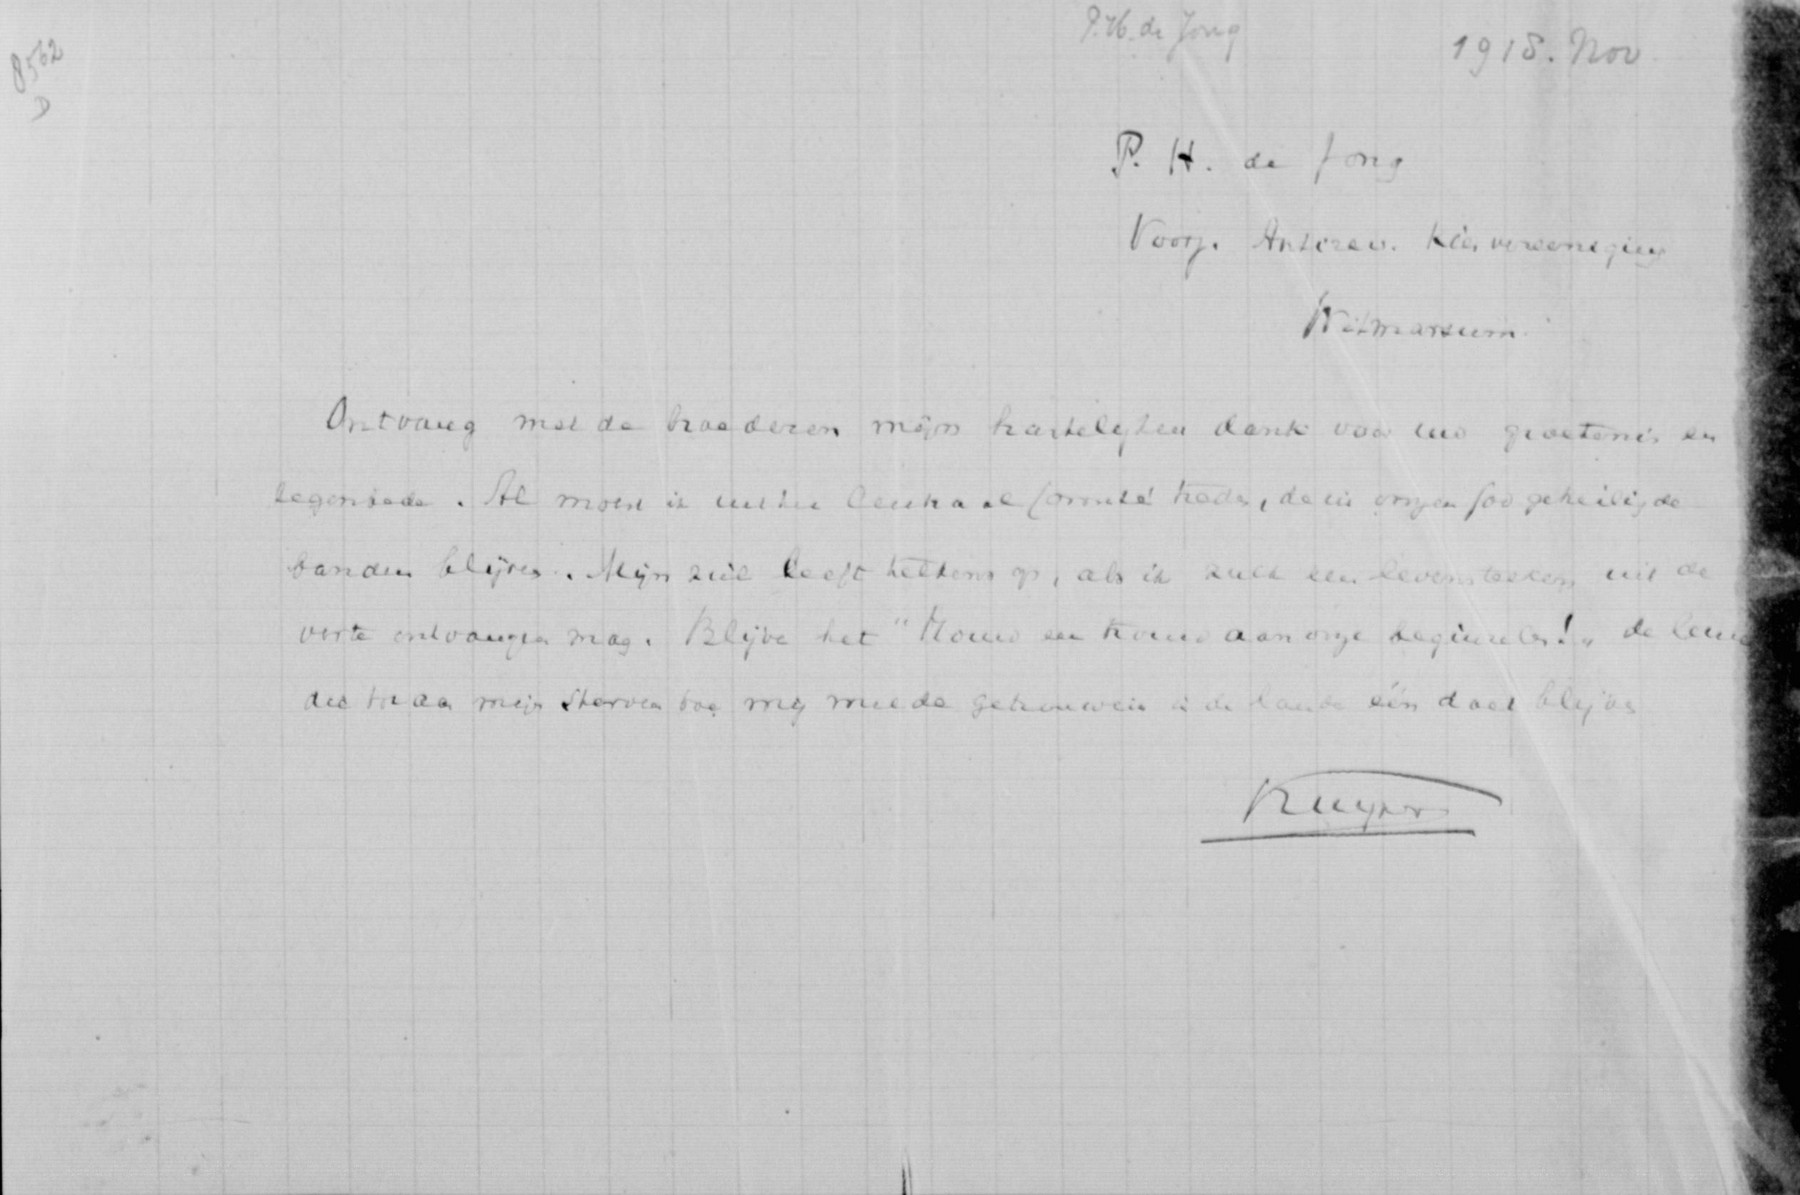 8562
D
P. H. de Jong
1918. Nov
P. H. de Jong
Voorz. Antirev. Kiesvereeniging
Witmarsum.
Ontvang met de broederen mijn hartelijken dank voor uw groetenis en
zegenbede. Al moest ik uit het Centraal Comité treden, de in onzen God geheiligde
banden blijven. Mijn ziel leeft telkens op, als ik zulk een levensteeken uit de
verte ontvangen mag. Blijve het "Houw en trouw aan onze beginselen!" de leus
die tot aan mijn sterven toe mij met de getrouwen in de lande één doet blijven
Kuyper